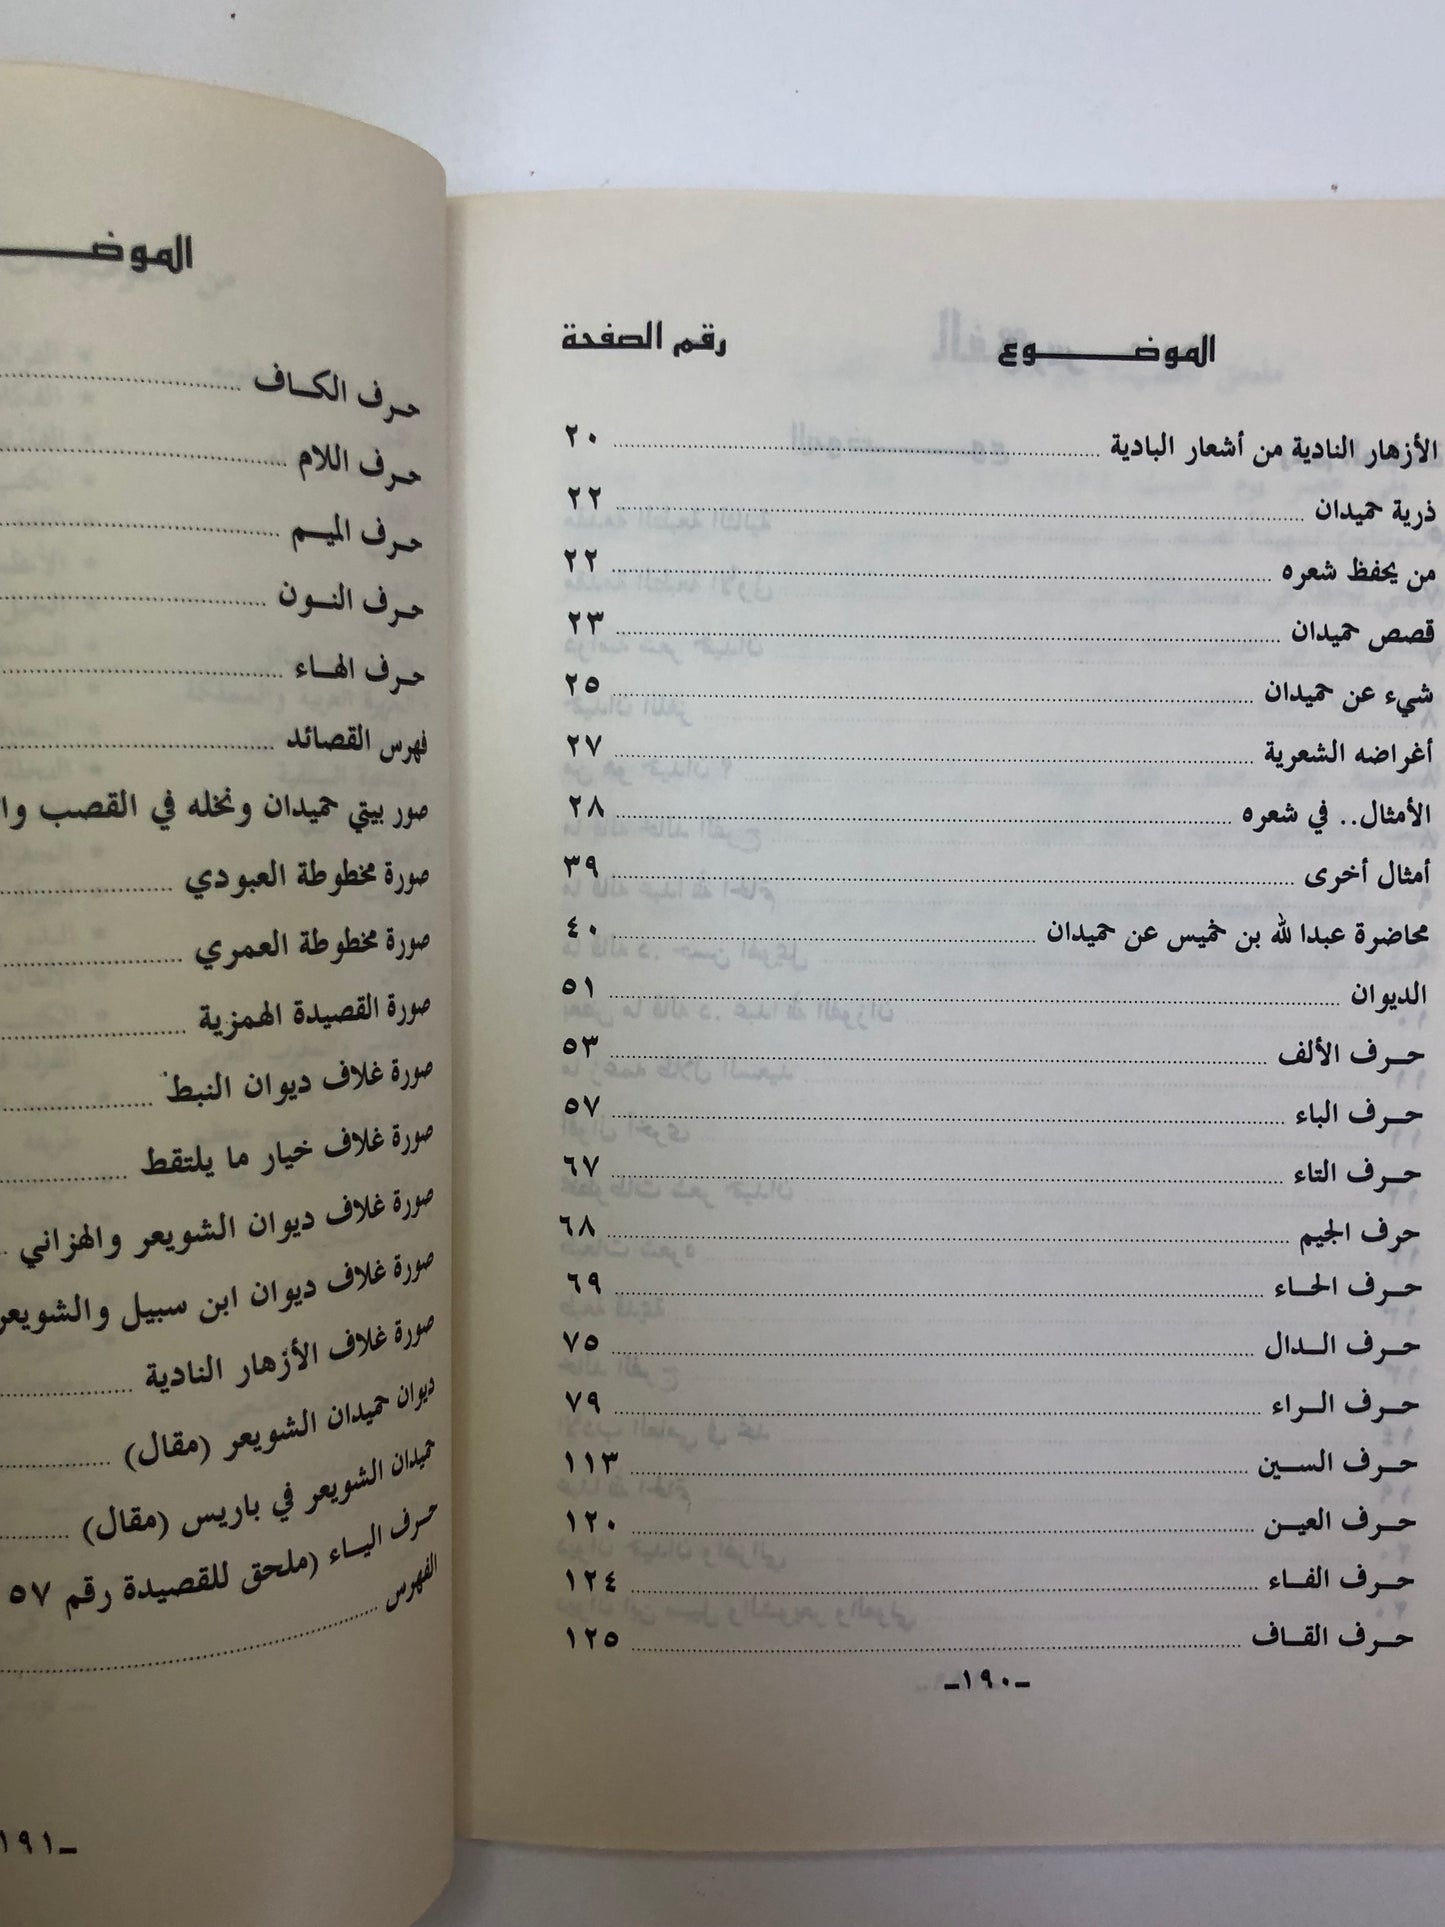 الموضـــــوع رقم الصفحة
الأزهار النادية من أشعار البادية ........ ٢٠
ذرية حميدان ........ ٢٢
من يحفظ شعره ........ ٢٢
قصص حميدان ........ ٢٣
شيء عن حميدان ........ ٢٥
أغراضه الشعرية ........ ٢٧
الأمثال.. في شعره ........ ٢٨
أمثال أخرى ........ ٣٩
محاضرة عبدالله بن خميس عن حميدان ........ ٤٠
الديوان ........ ٥١
حـرف الألف ........ ٥٣
حـرف الباء ........ ٥٧
حـرف التاء ........ ٦٧
حرف الجيم ........ ٦٨
حـرف الحـاء ........ ٦٩
حـرف الـدال ........ ٧٥
حـرف الـراء ........ ٧٩
حـرف السـين ........ ١١٣
حـرف العيـن ........ ١٢٠
حـرف الفـاء ........ ١٢٤
حـرف القـاف ........ ١٢٥
ـ١٩٠ـ
الموضـــــ
حـرف الكـاف ........
حـرف اللام ........
حـرف الميـم ........
حـرف النـون ........
حـرف الهـاء ........
فهرس القصائد ........
صور بيتي حميدان ونخله في القصب
صورة مخطوطة العبودي ........
صورة مخطوطة العمري ........
صورة القصيدة الهمزية ........
صورة غلاف ديوان النبط ........
صورة غلاف خيار ما يلتقط ........
صورة غلاف ديوان الشويعر والهزاني
صورة غلاف ديوان ابن سبيل والشويعر
صورة غلاف الأزهار النادية ........
ديوان حميدان الشويعر (مقال) ........
حميدان الشويعر في باريس (مقال) ........
حـرف اليـاء (ملحق للقصيدة رقم ٥٧
الفهرس ........
ـ١٩١